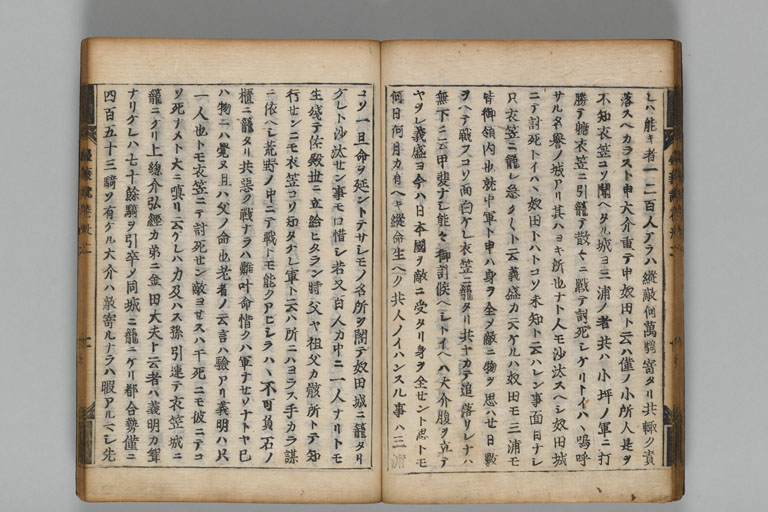 レハ能キ者一二百人アラハ縱敵何萬騎寄タリ共輙ク責
落スヘカラスト申大介重テ申奴田ト云ハ僅ノ小所人是ヲ
不知衣笠コソ聞ヘタル城ヨ三浦ノ者共ハ小坪ノ軍ニ打
勝テ軈衣笠ニ引籠テ散々ニ戰テ討死シケリトイハヽ嗚呼
サル名譽ノ城アリ其ハヨキ所也ナト人モ沙汰スヘシ奴田城
ニテ討死トイハヽ奴田トハトコソ未知ト云ハレン事面目ナシ
只衣笠ニ籠レ急々ト云義盛カ云ケルハ奴田モ三浦モ
皆御領内也就中軍ト申ハ身ヲ全〆敵ニ物ヲ思ハセ日數
ヲヘテ戰スコソ面白ケレ衣笠ニ籠タリ共ヤカテ追落サレナハ
無下ニ云甲斐ナシ能々御計候ヘシトイヘハ大介腹ヲ立テ
ヤヲレ義盛ヨ今ハ日本國ヲ敵ニ受タリ身ヲ全セント思トモ
何日何月カ有ヘキ縱命生ヘク共人ノイハンスル事ハ三浦
コソ一旦命ヲ延ントテサレモノ名所ヲ閣テ奴田城ニ籠タリ
ケレト沙汰セン事モ口惜シ若又百人カ中ニ一人ナリトモ
生殘テ佐殿世ニ立給ヒタラン時父ヤ祖父カ骸所トテ知
行センニモ衣笠コソ知タケレ軍ト云ハ所ニハヨラス手カラ謀
ニ依ヘシ荒野ノ中ニテ戰トモ能クアヒシラハヽ不可負石ノ
櫃ニ籠タリ共惡ク戰ナラハ難叶命惜クハ軍ナセソナトヤ已
ハ物ニハ覺ヌ且ハ父ノ命也老者ノ云言ハ驗アリ義明ハ只
一人也トモ衣笠ニテ討死セン敵ヨセスハ干死ニモ彼ニテコ
ソ死ナメト大ニ嗔リ云ケレハ力及ハス孫引連テ衣笠城ニ
籠ニケリ上總介弘經カ弟ニ金田大夫ト云者ハ義明カ聟
ナリケレハ七十餘騎ヲ引卒〆同城ニ籠ニケリ都合勢僅ニ
四百五十三騎ソ有ケル大介ハ敵寄ルナラハ暇アルヘシ先